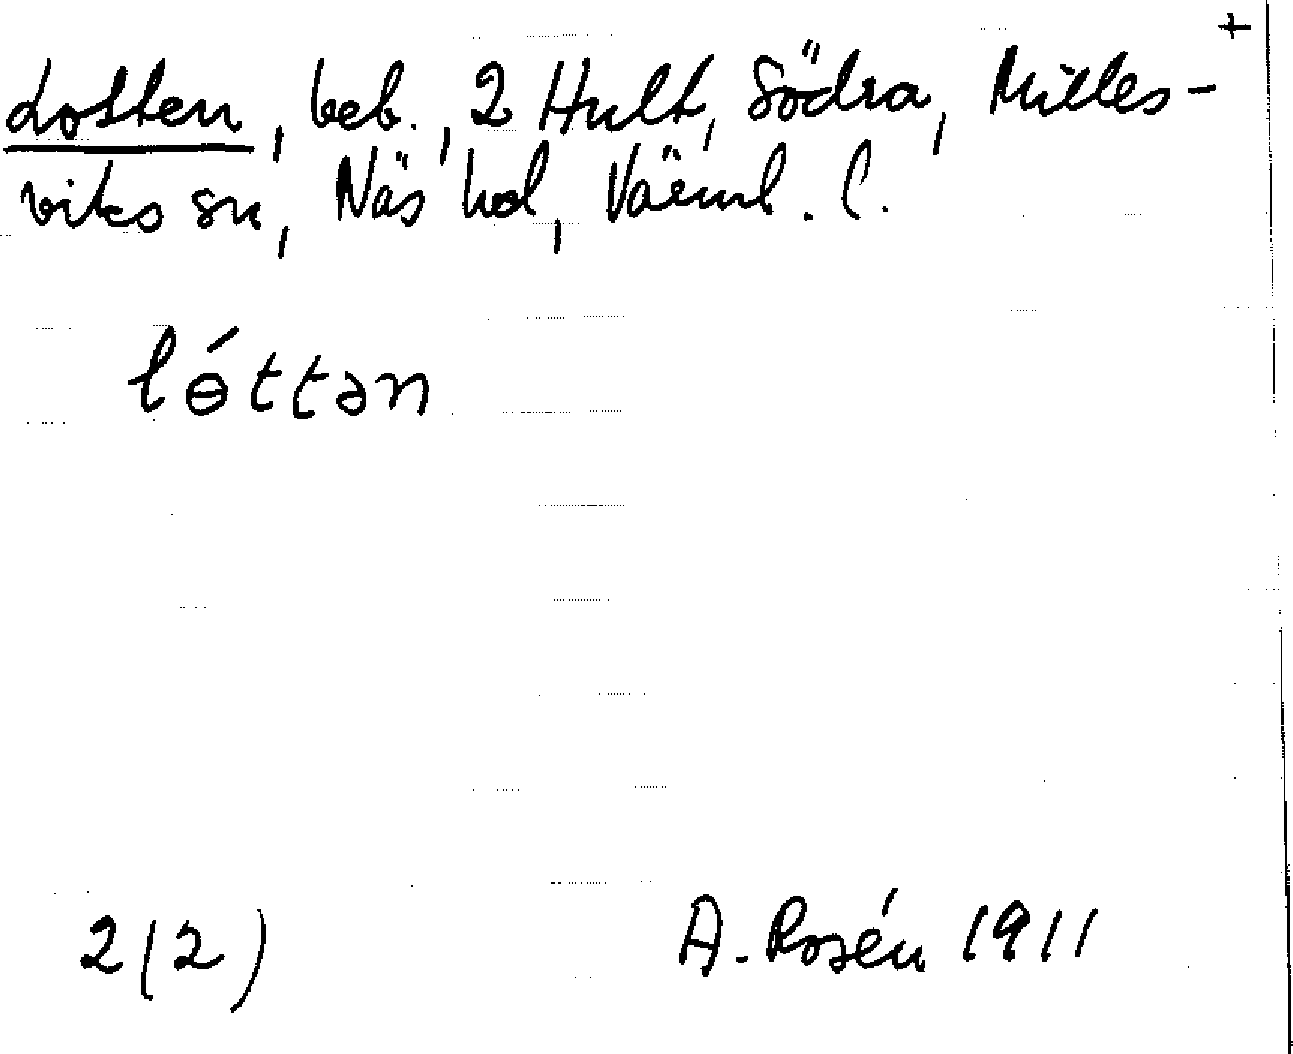 +
Lotten, beb., 2 Hult, Södra, Milles-
viks sn, Näs hd, Värml. l.
lɵ́ttən
2(2) A. Rosén 1911